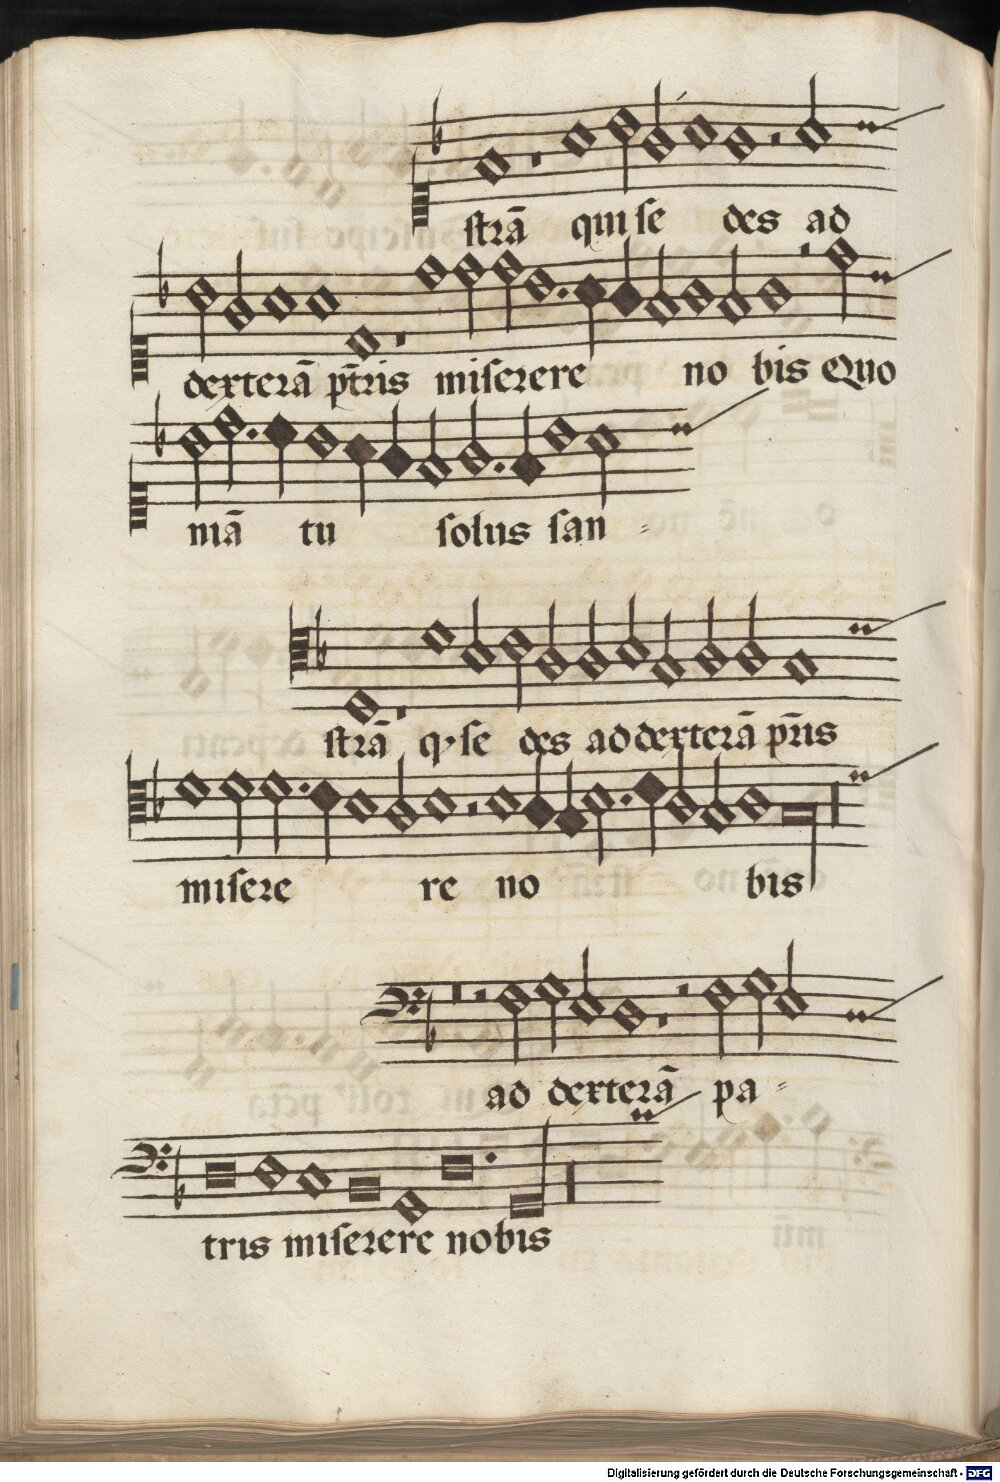 strā qui se des ad
dexterā pr̄tris miserere no bis Quo
niā tu solus san-
strā q se des ad dexterā pr̄is
misere re no bis
ad dexterā pa-
tris miserere nobis
Digitalisierung gefördert durch die Deutsche Forschungsgemeinschaft - DFG